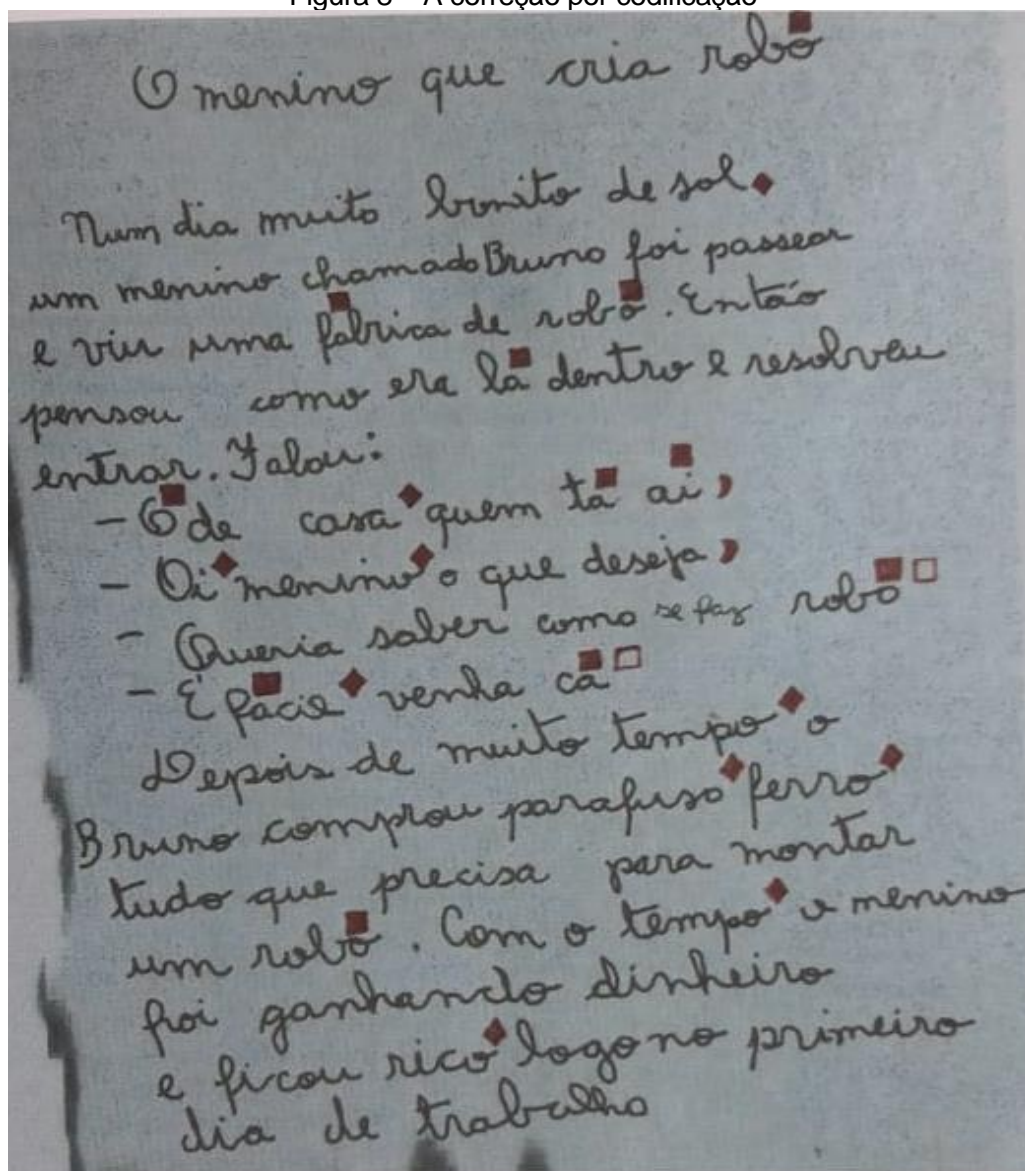 Figura 8 – A correção por codificação
O menino que cria robô
Num dia muito bonito de sol
um menino chamado Bruno foi passear
e viu uma fabrica de robo. Então
pensou como era la dentro e resolveu
entrar. Falou:
- O de casa quem ta ai
- Oi menino o que deseja
- Queria saber como se faz robo
- É facio venha ca
Depois de muito tempo o
Bruno comprou parafuso ferro
tudo que precisa para montar
um robo. Com o tempo o menino
foi ganhando dinheiro
e ficou rico logo no primeiro
dia de trabalho